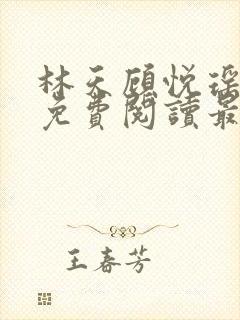 林天顾悦瑶
免費閱讀最
王春芳